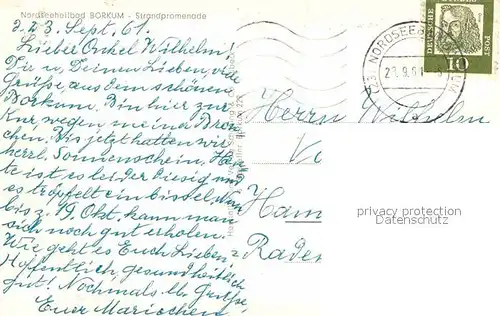 Nordseeheilbad BORKUM - Strandpromenade
z. Z. 23. Sept. 61.
Lieber Onkel Wilhelm!
Dir u. Deinen Lieben, viele
Grüße, aus dem schönen
Borkum. Bin hier zur
Kur wegen meiner Bron-
chen. Bis jetzt hatten wir
herrl. Sonnenschein. Heu-
te ist es leider diesig und
es tröpfelt ein bissel. Nun
bis z. 19. Okt. kann man
sich noch gut erholen.
Wie geht es Euch Lieben?
Hoffentlich gesundheitlich
gut! Nochmals lb. Grüße,
Euer Mariechen
Herrn Wilhelm
V
Ham
Rader
NORDSEE
23.9.61
DEUTSCHE BUNDESPOST
10
privacy protection